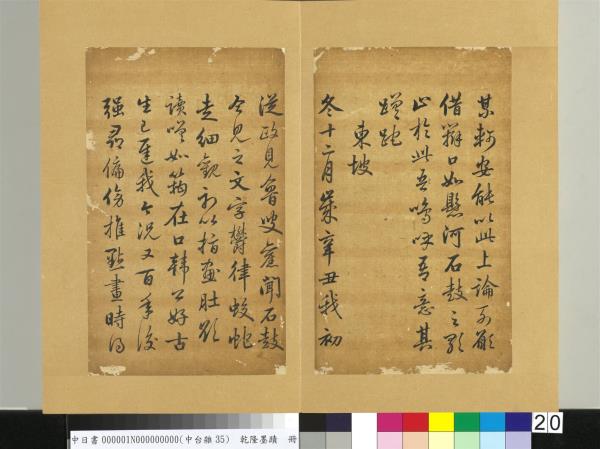 某軻安能以此上論列願
借辯口如懸河石鼓之歌
止於此吾嗚呼吾意其
蹉跎
東坡
冬十二月歲辛丑我初
從政見魯叟舊聞石鼓
今見之文字鬱律蛟蛇
走細觀初以指畫肚欲
讀嗟如箝在口韓公好古
生已遲我今況又百年後
強尋偏傍推點畫時得
中日書000001N000000000(中台雜35) 乾隆墨蹟 冊
20